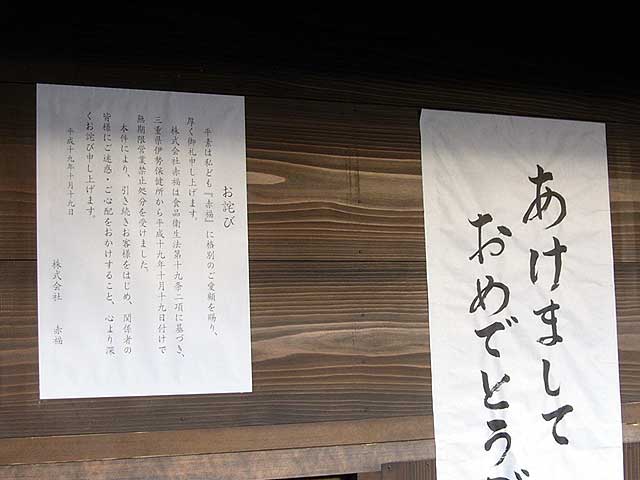 お詫び
平素は私ども『赤福』に格別のご愛顧を賜り、
厚く御礼申し上げます。
株式会社赤福は食品衛生法第十九条二項に基づき、
三重県伊勢保健所から平成十九年十月十九日付けで
無期限営業禁止処分を受けました。
本件により、引き続きお客様をはじめ、関係者の
皆様にご迷惑・ご心配をおかけすること、心より深
くお詫び申し上げます。
平成十九年十月十九日
株式会社 赤福
あけまして
おめでとうご